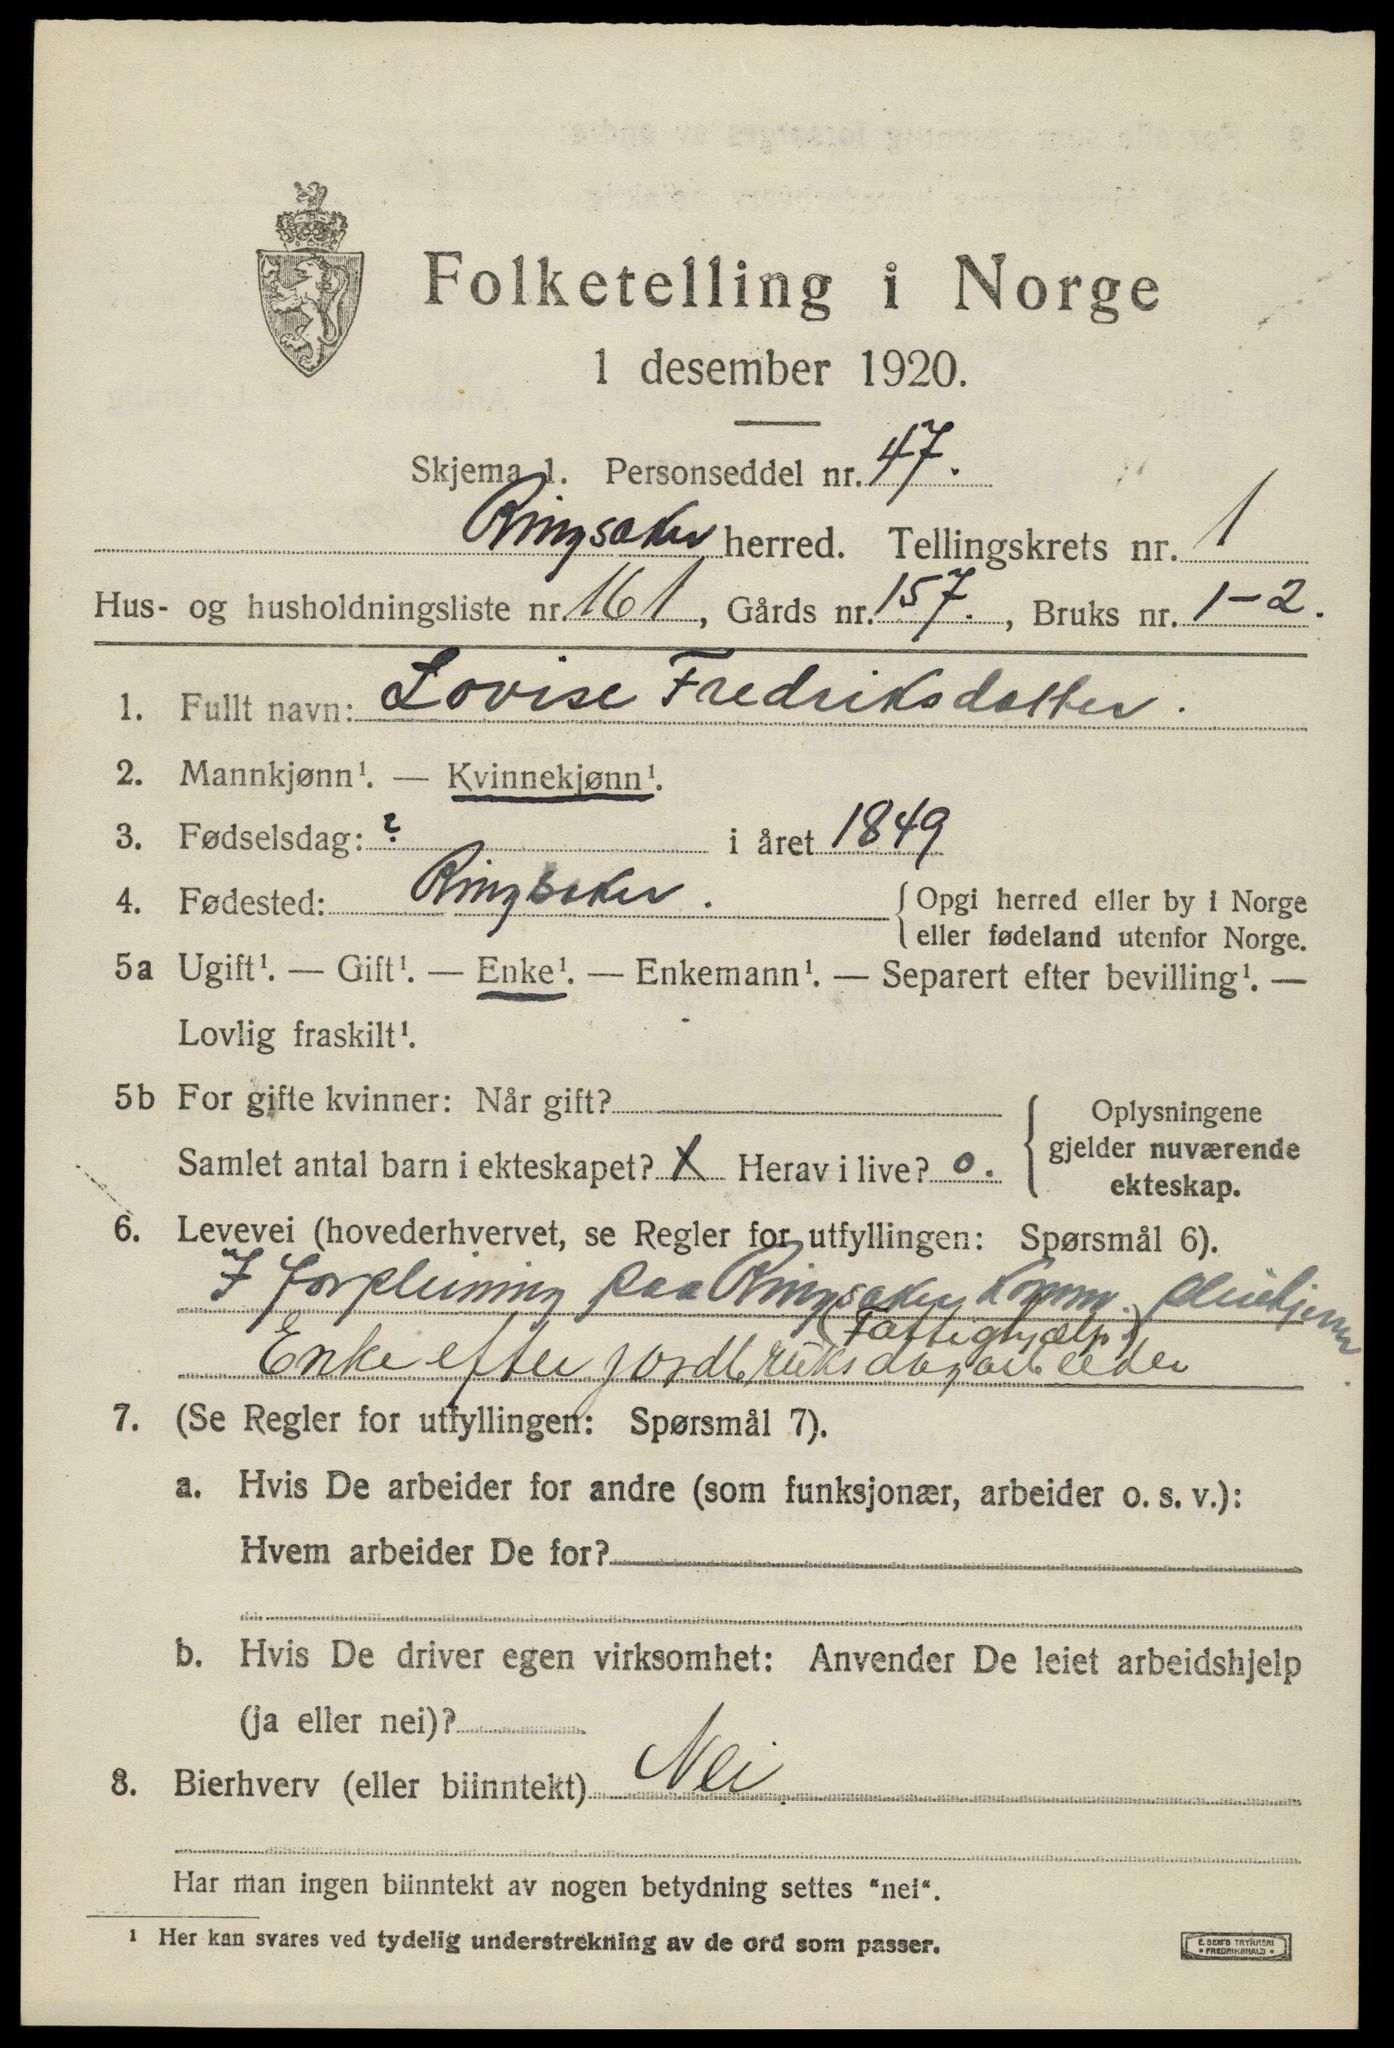 Folketelling i Norge
1 desember 1920.
Skjema 1. Personseddel nr. 47.
Ringsaker herred. Tellingskrets nr. 1
Hus- og husholdningsliste nr. 161, Gårds nr. 157., Bruks nr. 1-2.
1. Fullt navn: Lovise Fredriksdatter.
2. Mannkjønn¹. — Kvinnekjønn¹.
3. Fødselsdag: ? i året 1849
4. Fødested: Ringsaker. { Opgi herred eller by i Norge
eller fødeland utenfor Norge.
5a Ugift¹. — Gift¹. — Enke¹. — Enkemann¹. — Separert efter bevilling¹. —
Lovlig fraskilt¹.
5b For gifte kvinner: Når gift?
Samlet antal barn i ekteskapet? X Herav i live? 0.
{ Oplysningene
gjelder nuværende
ekteskap.
6. Levevei (hovederhvervet, se Regler for utfyllingen: Spørsmål 6).
I forpleining paa Ringsaker komm. pleiehjem
(Fattighjælp)
Enke efter jordbruksdagarbeider
7. (Se Regler for utfyllingen: Spørsmål 7).
a. Hvis De arbeider for andre (som funksjonær, arbeider o. s. v.):
Hvem arbeider De for?
b. Hvis De driver egen virksomhet: Anvender De leiet arbeidshjelp
(ja eller nei)?
8. Bierhverv (eller biinntekt) Nei
Har man ingen biinntekt av nogen betydning settes "nei".
¹ Her kan svares ved tydelig understrekning av de ord som passer.
E. SEM'S TRYKKERI
• FREDRIKSHALD •